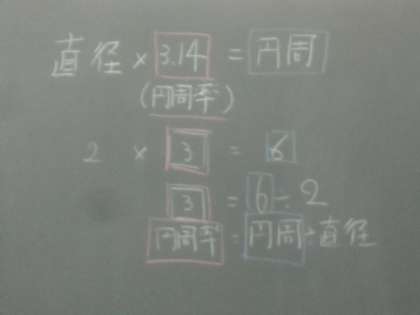 直径 × 3.14 = 円周
(円周率)
2 × 3 = 6
3 = 6 ÷ 2
円周率 = 円周 ÷ 直径